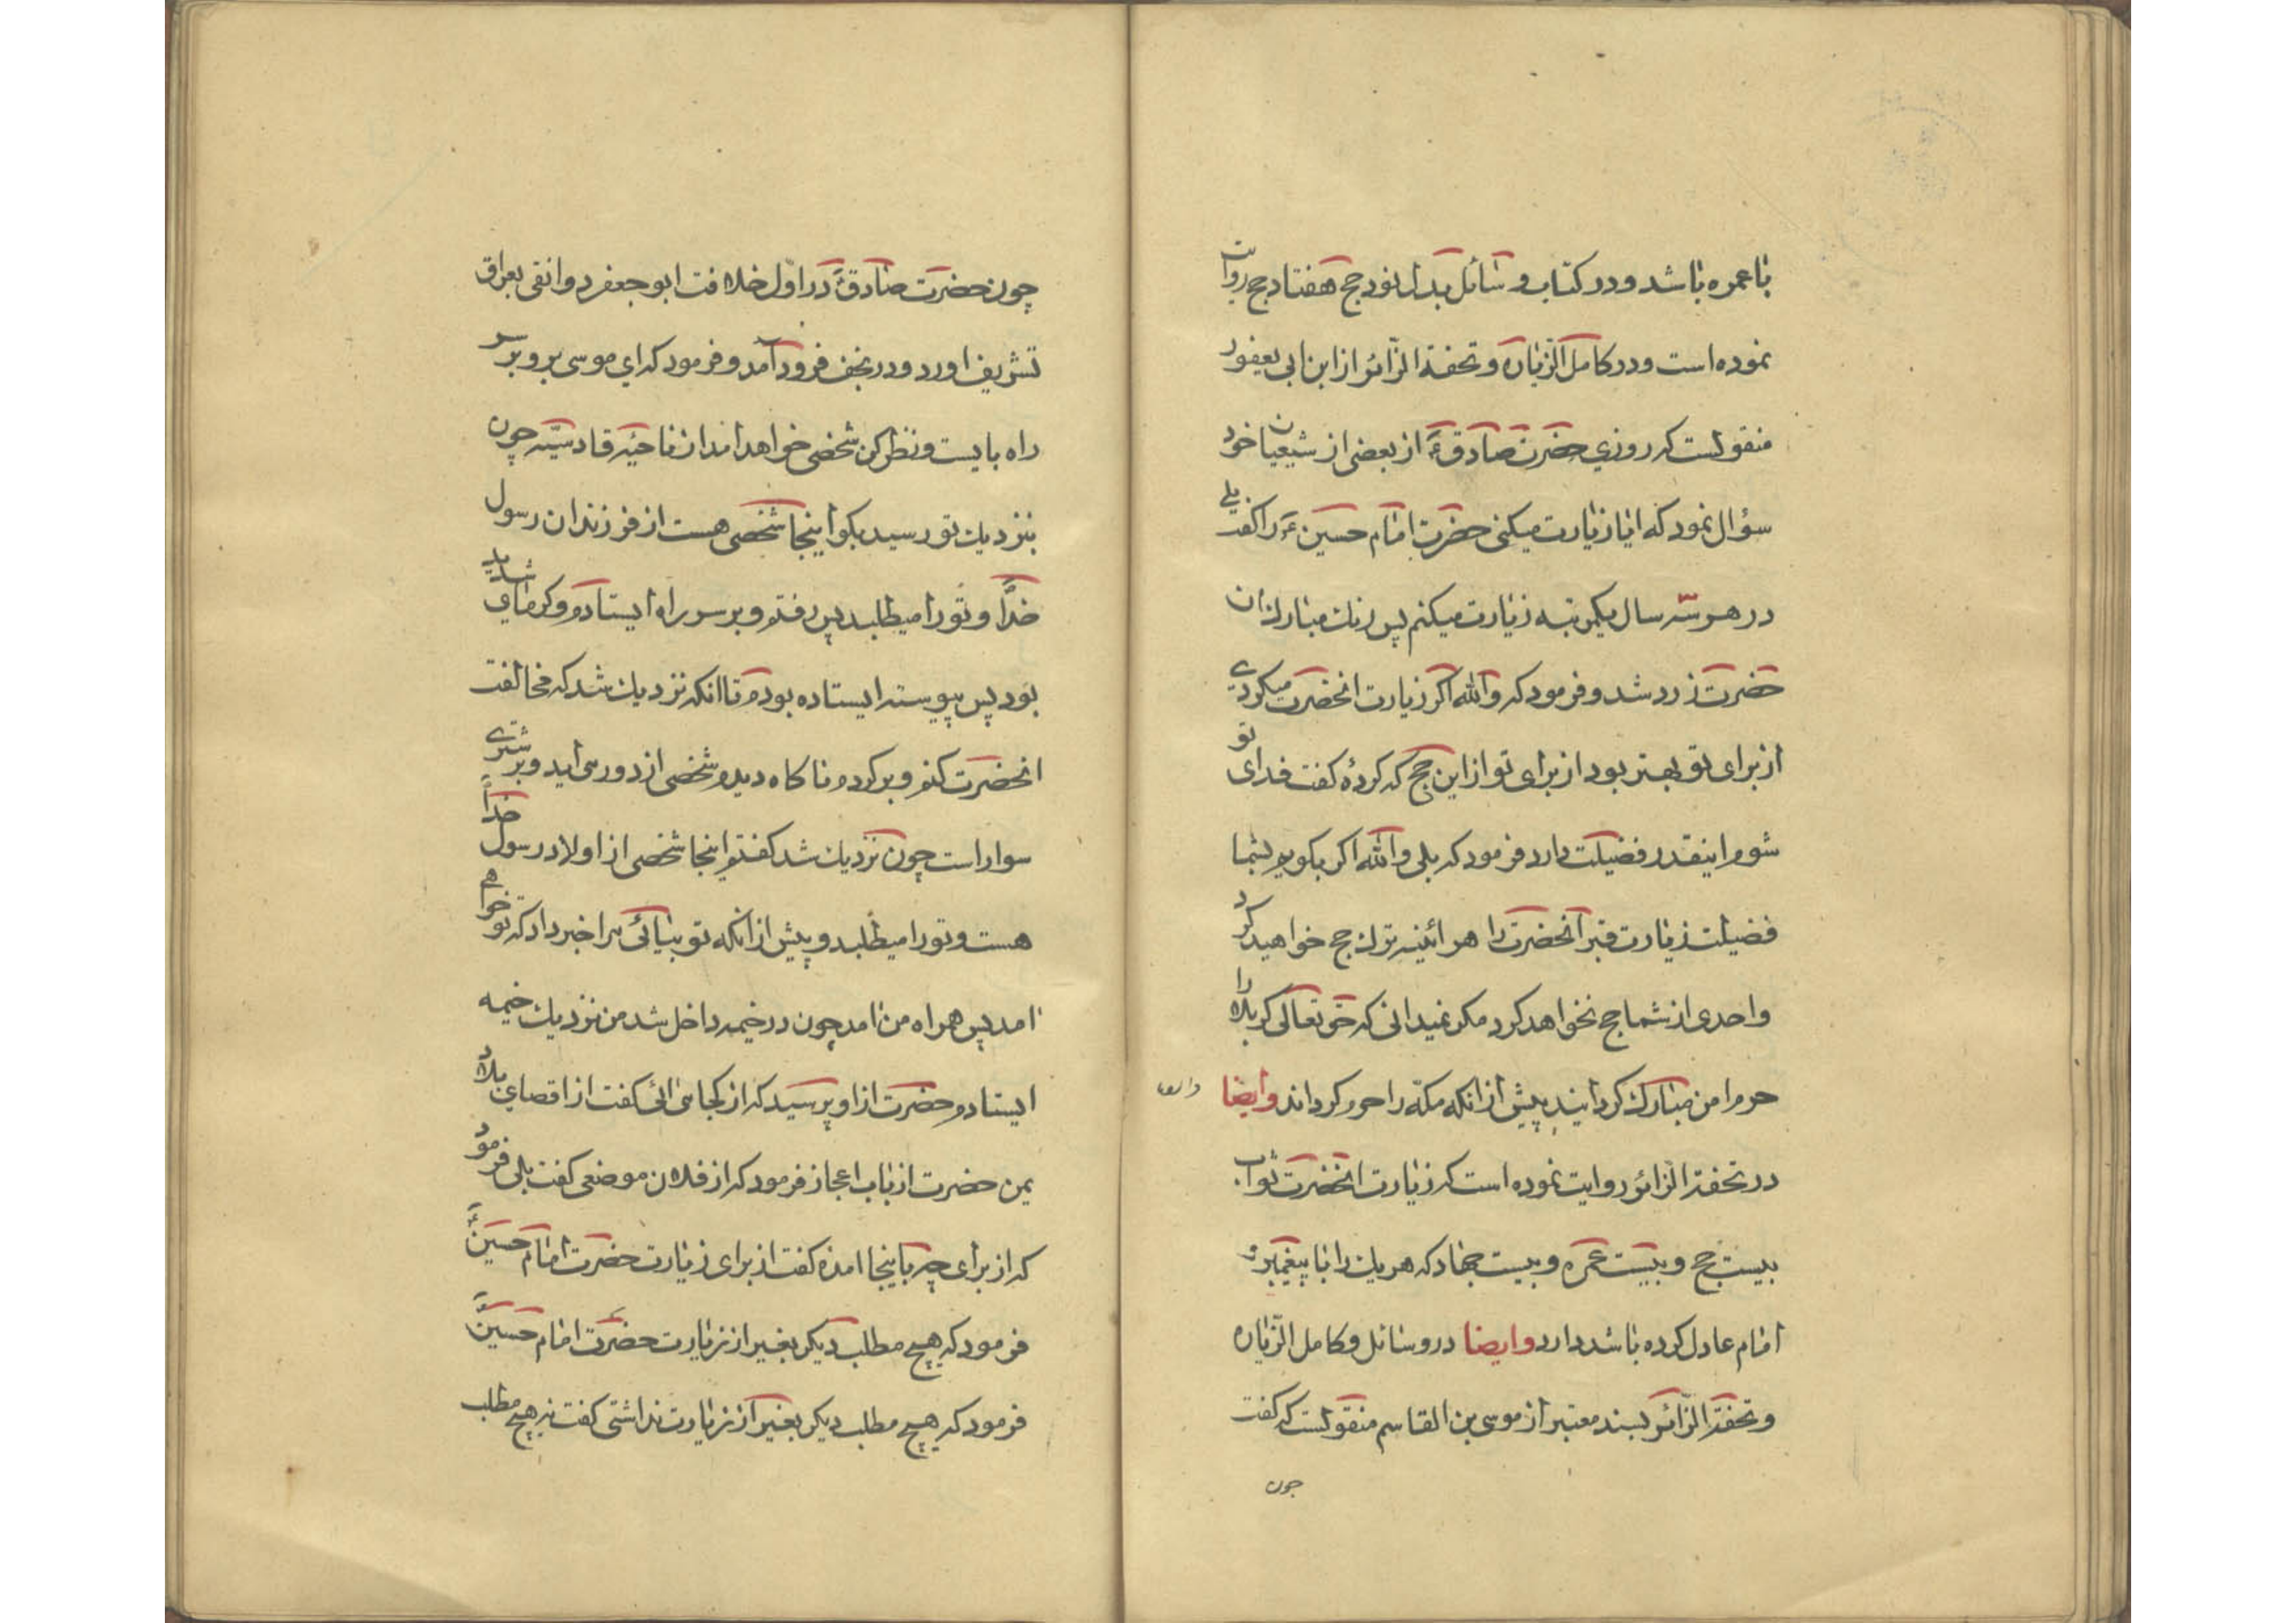 با عمره باشد و در کتاب وسائل بدل نود حج هفتاد حج روایت
نموده است و در کامل الزّیاره و تحفة الزّائر از ابن ابی یعفور
منقولست که روزی حضرت صادقؑ از بعضی از شیعیان خود
سؤال نمود که ایا زیارت میکنی حضرت امام حسینؑ را گفت بلی
در هر سه سال یکمرتبه زیارت میکنم پس رنك مبارك ان
حضرت زرد شد و فرمود که والله اکر زیارت انحضرت میکردی
از برای تو بهتر بود از برای تو از این حج که کردهٔ کفت فدای تو
شوم اینقدر فضیلت دارد فرمود که بلی والله اکر بکویم بشما
فضیلت زیارت قبر آنحضرت را هر ائینه ترك حج خواهید کرد
واحدی از شما حج نخواهد کرد مکر نمیدانی که حق تعالی کربلا را
حرم امن مبارك کردانید پیش از انکه مکّه را حرم کرداند وایضا
در تحفة الزائر روایت نموده است که زیارت انحضرت ثواب
بیست حج و بیست عمره و بیست جهاد که هریك را با پیغمبر و
امام عادل کرده باشد دارد وایضا در وسائل و کامل الزّیاره
و تحفة الزّائر بسند معتبر از موسی بن القاسم منقولست که کفت
چون
چون حضرت صادقؑ در اوّل خلافت ابو جعفر دوانقی بعراق
تشریف اورد و در نجف فرود آمد و فرمود که ای موسی برو بر سر
راه بایست و نظر کن شخصی خواهد امد از ناحیّه قادسیّه چون
بنزدیك تو رسید بکو اینجا شخصی هست از فرزندان رسول
خدا و تو را میطلبد پس رفتم و بر سر راه ایستادم و کرمای شدید
بود پس پیوسته ایستاده بودم تا انکه نزدیك شد که مخالفت
انحضرت کنم و برکردم ناکاه دیدم شخصی از دور می اید و بر شتری
سوار است چون نزدیك شد کفتم اینجا شخصی از اولاد رسول خدا
هست و تو را میطلبد و پیش از انکه تو بیائی مرا خبر داد که تو خواهی
امد پس همراه من امد چون در خیمه داخل شد من نزدیك خیمه
ایستادم حضرت از او پرسید که از کجا می ائی کفت از اقصای بلاد
یمن حضرت از باب اعجاز فرمود که از فلان موضعی کفت بلی فرمود
که از برای چه باینجا امدهٔ کفت از برای زیارت حضرت امام حسینؑ
فرمود که هیچ مطلب دیکر بغیر از زیارت حضرت امام حسینؑ
فرمود که هیچ مطلب دیکر بغیر از زیارت نداشتی کفت نه هیچ مطلب